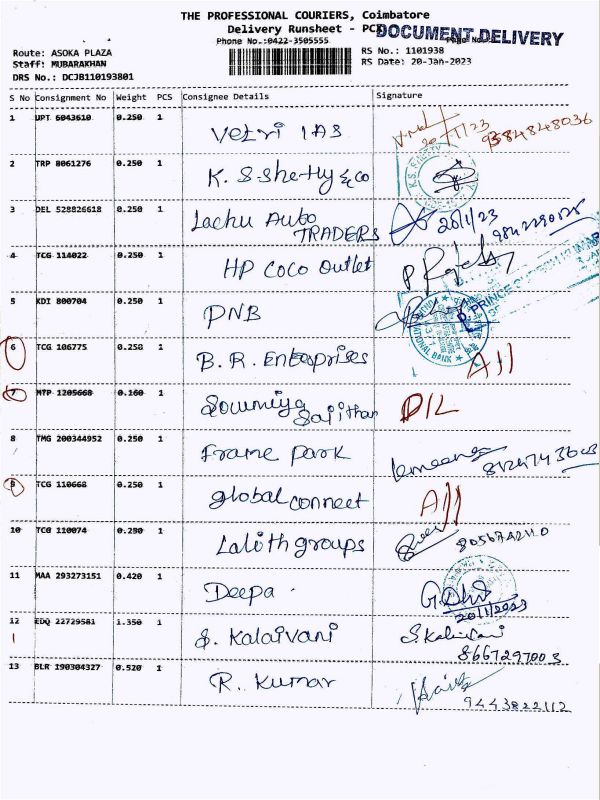 THE PROFESSIONAL COURIERS, Coimbatore
Delivery Runsheet - PCD
DOCUMENT DELIVERY
Phone No.:0422-3505555
Route: ASOKA PLAZA
RS No.: 1101938
Staff: MUBARAKHAN
RS Date: 20-Jan-2023
DRS No.: DCJB110193801
S No Consignment No Weight PCS Consignee Details Signature
1 UPT 6043610 0.250 1 Vetri IAS 20/1/23 9384848036
2 TRP 8061276 0.250 1 K. S Shetty & co
3 DEL 528826618 0.250 1 Lachu Auto TRADERS 20/1/23
4 TCG 114022 0.250 1 HP Coco Outlet
5 KDI 800704 0.250 1 PNB
6 TCG 106775 0.250 1 B. R. Enterprises All
7 MTP 1205668 0.160 1 Sowmiya Sajithan D/L
8 TMG 200344952 0.250 1 Frame Park
9 TCG 110668 0.250 1 global connect All
10 TCG 110074 0.290 1 Lalith groups 8056742110
11 MAA 293273151 0.420 1 Deepa . 20/1/2023
12 EDQ 22729581 1.350 1 S. Kalaivani S. Kalaivani 8667297003
13 BLR 190304327 0.520 1 R. Kumar 9443822112